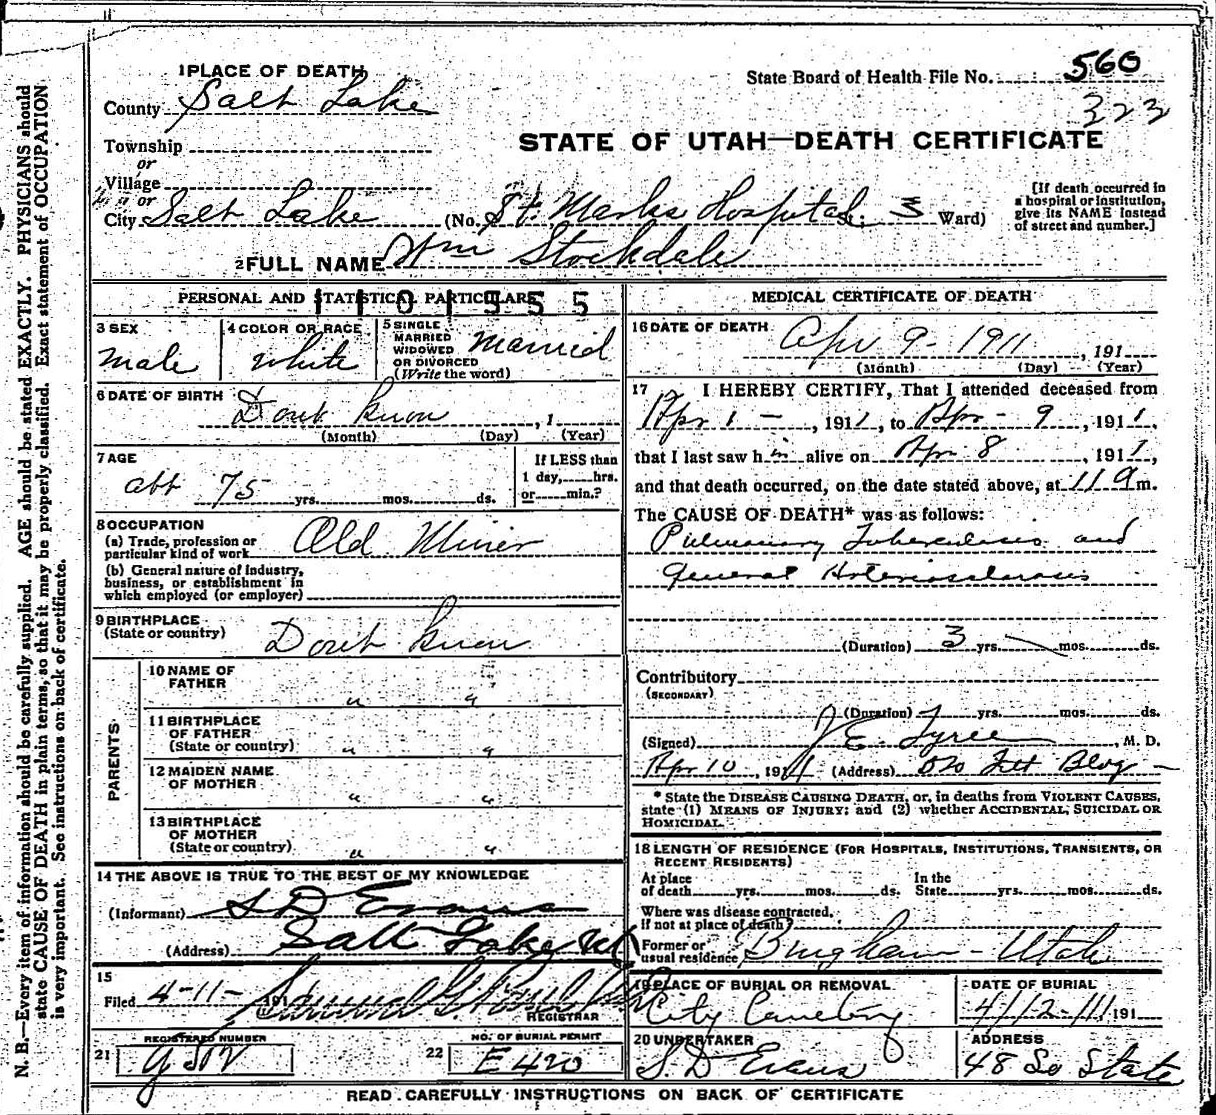 1 PLACE OF DEATH
County Salt Lake
State Board of Health File No. 560
323
STATE OF UTAH—DEATH CERTIFICATE
Township
or
Village
or
City Salt Lake (No. St. Marks Hospital St. 3 Ward)
[If death occurred in a hospital or institution, give its NAME instead of street and number.]
2 FULL NAME Wm Stockdale
PERSONAL AND STATISTICAL PARTICULARS
1101555
3 SEX
male
4 COLOR OR RACE
white
5 SINGLE MARRIED WIDOWED OR DIVORCED (Write the word)
married
6 DATE OF BIRTH
Dont know, 1
(Month) (Day) (Year)
7 AGE
abt 75 yrs. mos. ds.
If LESS than 1 day, hrs. or min.?
8 OCCUPATION
(a) Trade, profession or particular kind of work Old Miner
(b) General nature of industry, business, or establishment in which employed (or employer)
9 BIRTHPLACE
(State or country) Dont know
PARENTS
10 NAME OF FATHER " "
11 BIRTHPLACE OF FATHER (State or country) " "
12 MAIDEN NAME OF MOTHER " "
13 BIRTHPLACE OF MOTHER (State or country) " "
14 THE ABOVE IS TRUE TO THE BEST OF MY KNOWLEDGE
(Informant) S D Evans
(Address) Salt Lake
15
Filed 4-11- 191
REGISTRAR
REGISTERED NUMBER
21
NO. OF BURIAL PERMIT
22 E420
MEDICAL CERTIFICATE OF DEATH
16 DATE OF DEATH
Apr 9 - 1911, 191
(Month) (Day) (Year)
17 I HEREBY CERTIFY, That I attended deceased from
Apr 1 -, 1911, to Apr - 9, 1911,
that I last saw him alive on Apr 8, 1911,
and that death occurred, on the date stated above, at 11 a m.
The CAUSE OF DEATH* was as follows:
Pulmonary Tuberculosis and
General Arteriosclerosis
(Duration) 3 yrs. mos. ds.
Contributory
(SECONDARY)
(Duration) yrs. mos. ds.
(Signed) J E Tyree, M. D.
Apr 10, 1911 (Address) Bldg
* State the DISEASE CAUSING DEATH, or, in deaths from VIOLENT CAUSES, state (1) MEANS OF INJURY; and (2) whether ACCIDENTAL, SUICIDAL OR HOMICIDAL.
18 LENGTH OF RESIDENCE (FOR HOSPITALS, INSTITUTIONS, TRANSIENTS, OR RECENT RESIDENTS)
At place of death yrs. mos. ds. In the State yrs. mos. ds.
Where was disease contracted, if not at place of death?
Former or usual residence Bingham - Utah
19 PLACE OF BURIAL OR REMOVAL
City Cemetery
DATE OF BURIAL
4/12-/11 191
20 UNDERTAKER
S. D Evans
ADDRESS
48 So State
READ CAREFULLY INSTRUCTIONS ON BACK OF CERTIFICATE
N. B.—Every item of information should be carefully supplied. AGE should be stated EXACTLY. PHYSICIANS should
state CAUSE OF DEATH in plain terms, so that it may be properly classified. Exact statement of OCCUPATION
is very important. See instructions on back of certificate.